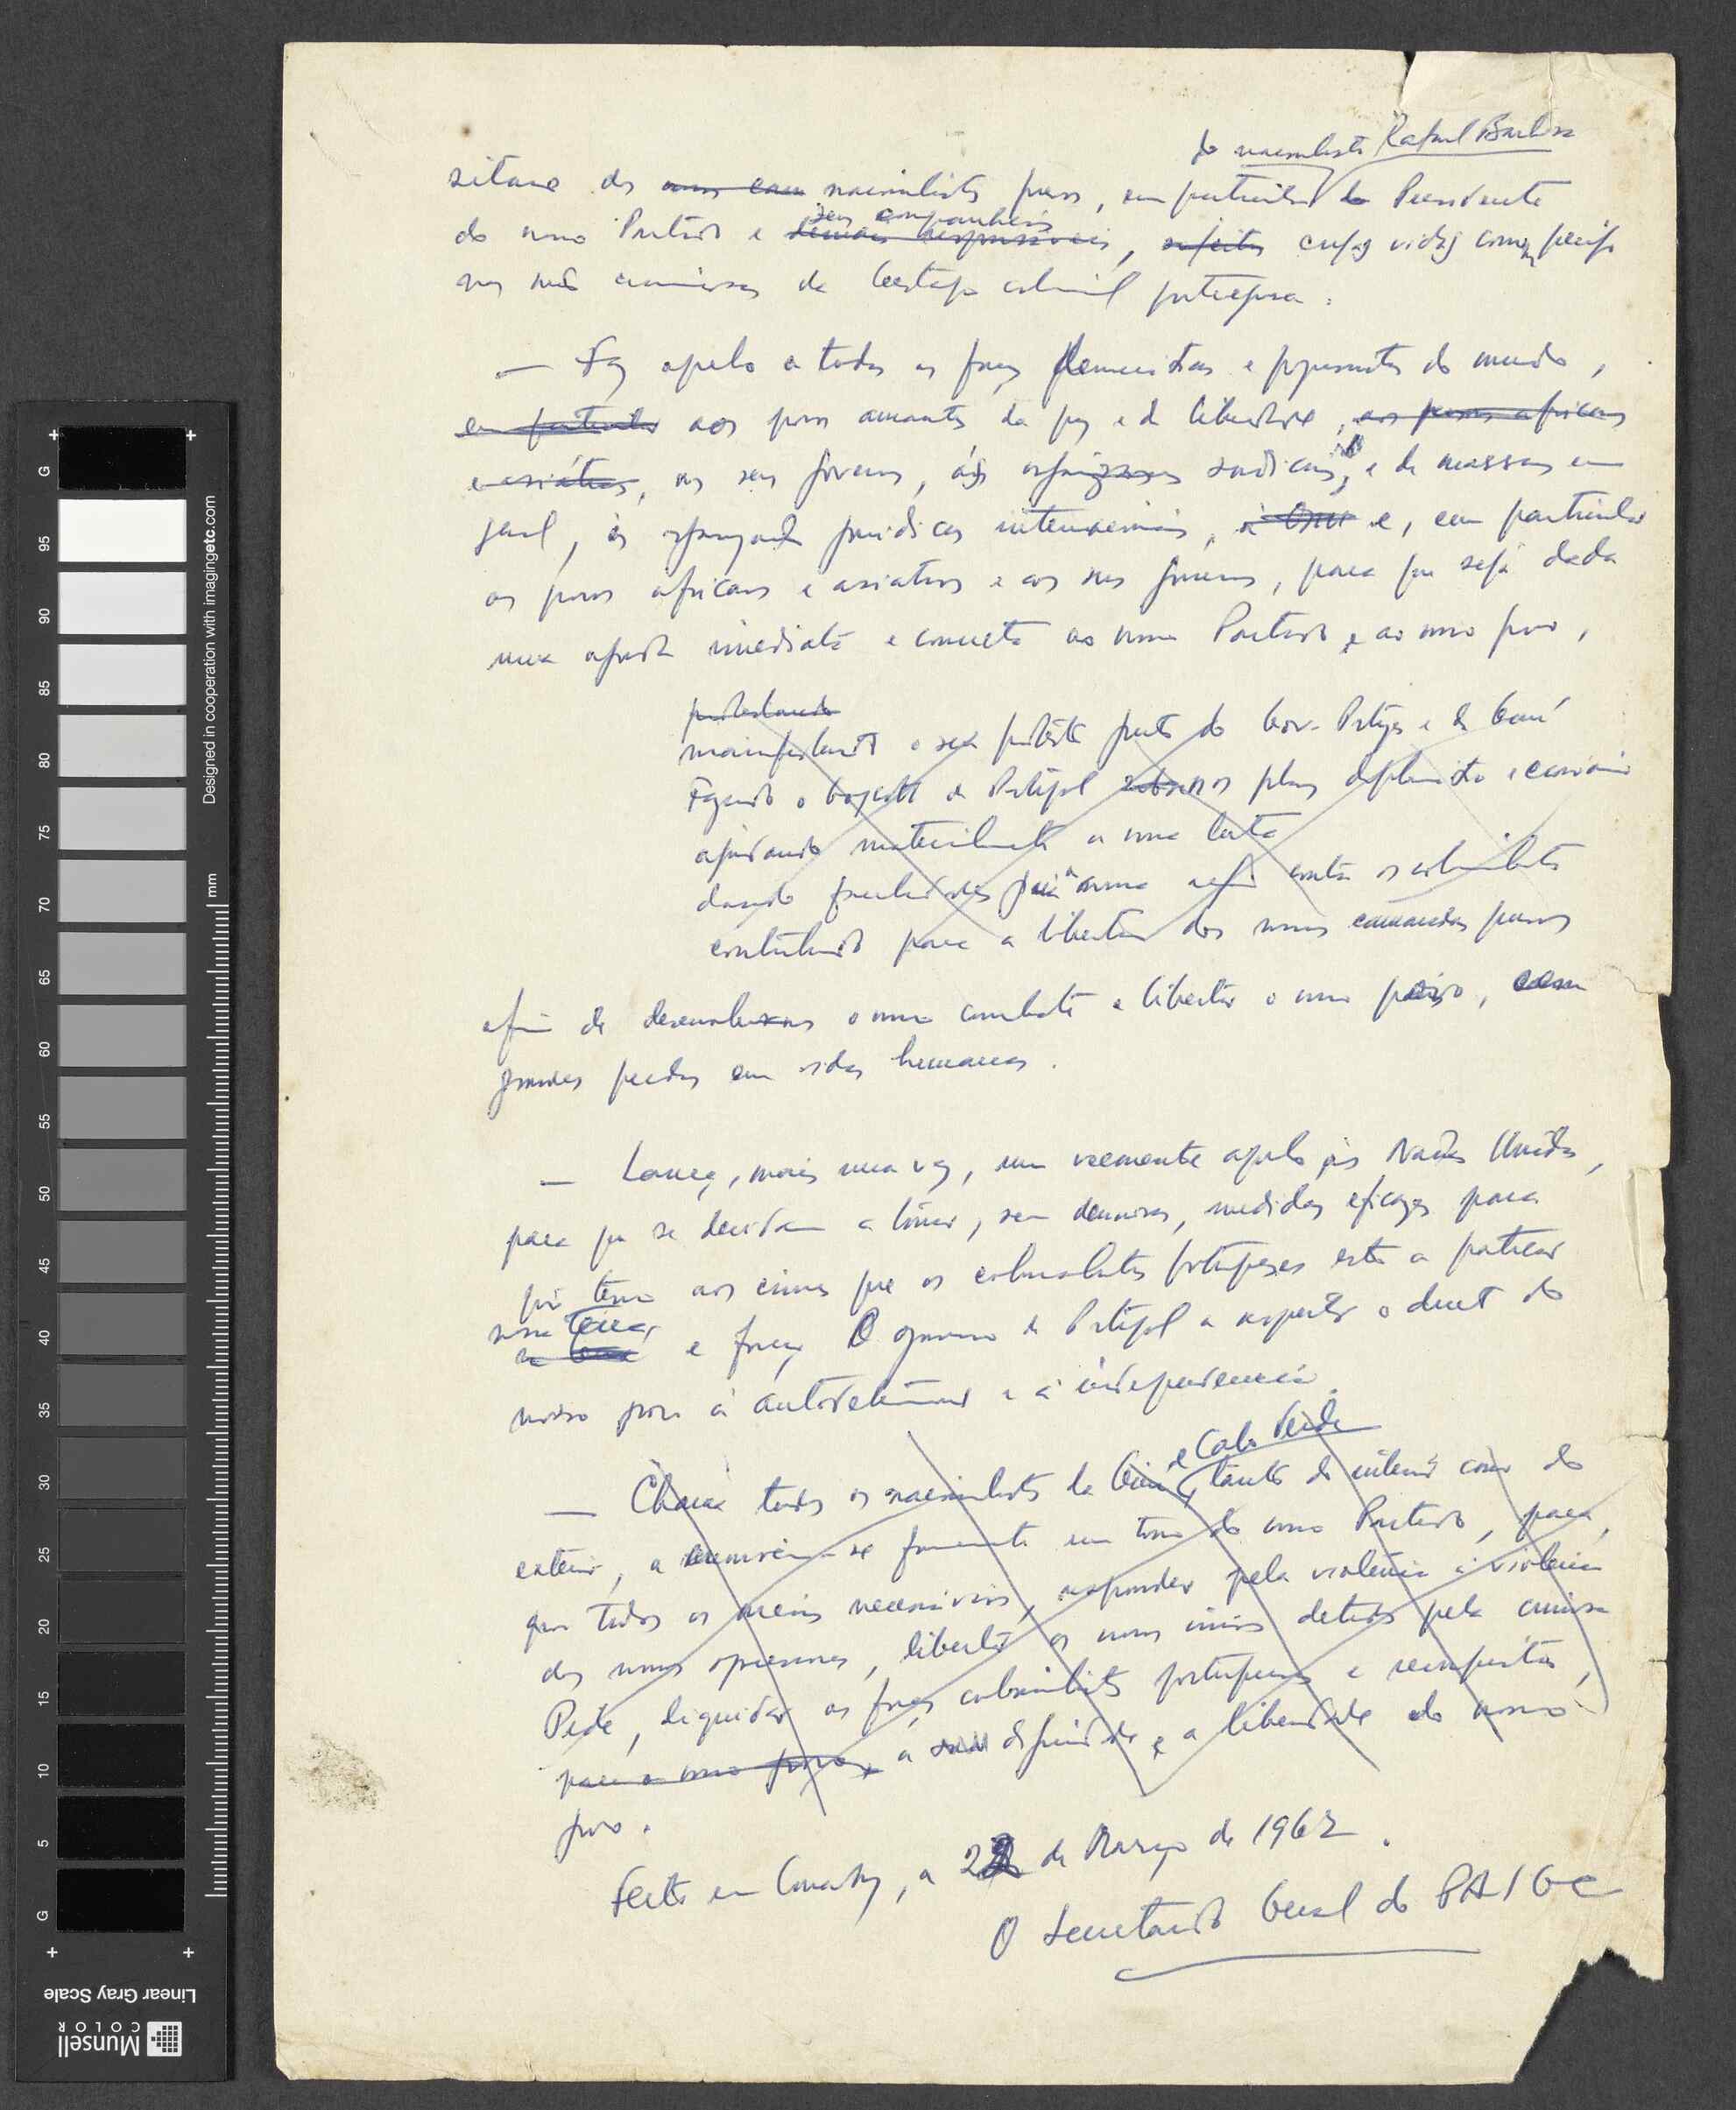 do nacionalista Rafael Barbosa
dos nacionalistas presos, em particular do Presidente
seus companheiros
do nosso Partido e demais responsáveis, sujeitos cujas vidas correm perigo
nas mãos criminosas da Gestapo colonial portuguesa.
— Faz apelo a todas as forças democráticas e progressistas do mundo,
em particular aos povos amantes da paz e da liberdade, aos povos africanos
e asiáticos, aos seus governos, às organizações sindicais, e de massas em
geral, às organizações jurídicas internacionais, à ONU e, em particular
aos povos africanos e asiáticos e aos seus governos, para que seja dada
uma ajuda imediata e concreta ao nosso Partido e ao nosso povo,
protestando
manifestando o seu protesto junto do Gov. Portuguez e da Guiné
Fazendo o boycott de Portugal nos planos diplomático e económico
ajudando materialmente a nossa luta
dando facilidades para a nossa acção contra os colonialistas
contribuindo para a libertação dos nossos camaradas presos
afim de desenvolvermos o nosso combate e libertar o nosso povo, sem
grandes perdas em vidas humanas.
— Lança, mais uma vez, um veemente apelo às Nações Unidas,
para que se decidam a tomar, sem demoras, medidas eficazes para
pôr termo aos crimes que os colonialistas portugueses estão a praticar
nossa terra,
e forçar O governo de Portugal a respeitar o direito do
nosso povo à autodeterminação e à independência.
e Cabo Verde
— Chama todos os nacionalistas da Guiné, tanto do interior como do
exterior, a unirem-se firmemente em torno do nosso Partido, para,
por todos os meios necessários, responder pela violência à violência
dos nossos opressores, libertar os nossos irmãos detidos pela criminosa
Pide, liquidar as forças colonialistas portuguesas e reconquistar,
para o nosso povo, a sua dignidade e a liberdade do nosso
povo.
Feito em Conakry, a 22 de Março de 1962.
O Secretariado Geral do PAIGC
Designed in cooperation with imagingetc.com
mm
G
95
90
85
80
75
70
65
60
55
50
45
40
35
30
25
20
15
10
5
G
Linear Gray Scale
Munsell
COLOR